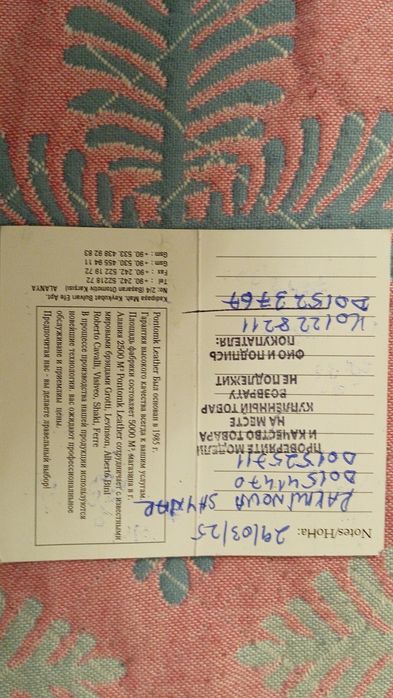 Notes/Нона:
29/03/25
D0154470
D0152571
ПРОВЕРЯЙТЕ МОДЕЛИ
И КАЧЕСТВО ТОВАРА
НА МЕСТЕ
КУПЛЕННЫЙ ТОВАР
ВОЗВРАТУ
НЕ ПОДЛЕЖИТ
ФИО И ПОДПИСЬ
ПОКУПАТЕЛЯ:
K01228211
D01523767
Puntomk Leather Был основан в 1985 г.
Гарантия высокого качества всегда к вашим услугам.
Площадь фабрики составляет 5000 M², магазина в г.
Алания 2500 M² Puntomk Leather сотрудничает с известными
мировыми брэндами Grotti, Levinson, Alberto Bini
Roberto Cavalli, Visiveo, Shaki, Ferre
В процессе производства нашей продукции используются
новейшие технологии. вас ожидают профессиональное
обслуживание и приемлимы цены.
Предпочитая нас - вы делаете правельный выбор!
Kadıpaşa Mah. Keykubat Bulvarı Efe Apt.
No: 2/4 (Başaran Otomotiv Karşısı) ALANYA
Tel : +90. 242. 522 18 72
Fax : +90. 242. 522 19 72
Gsm : +90. 530. 455 94 11
Gsm : +90. 533. 438 92 83